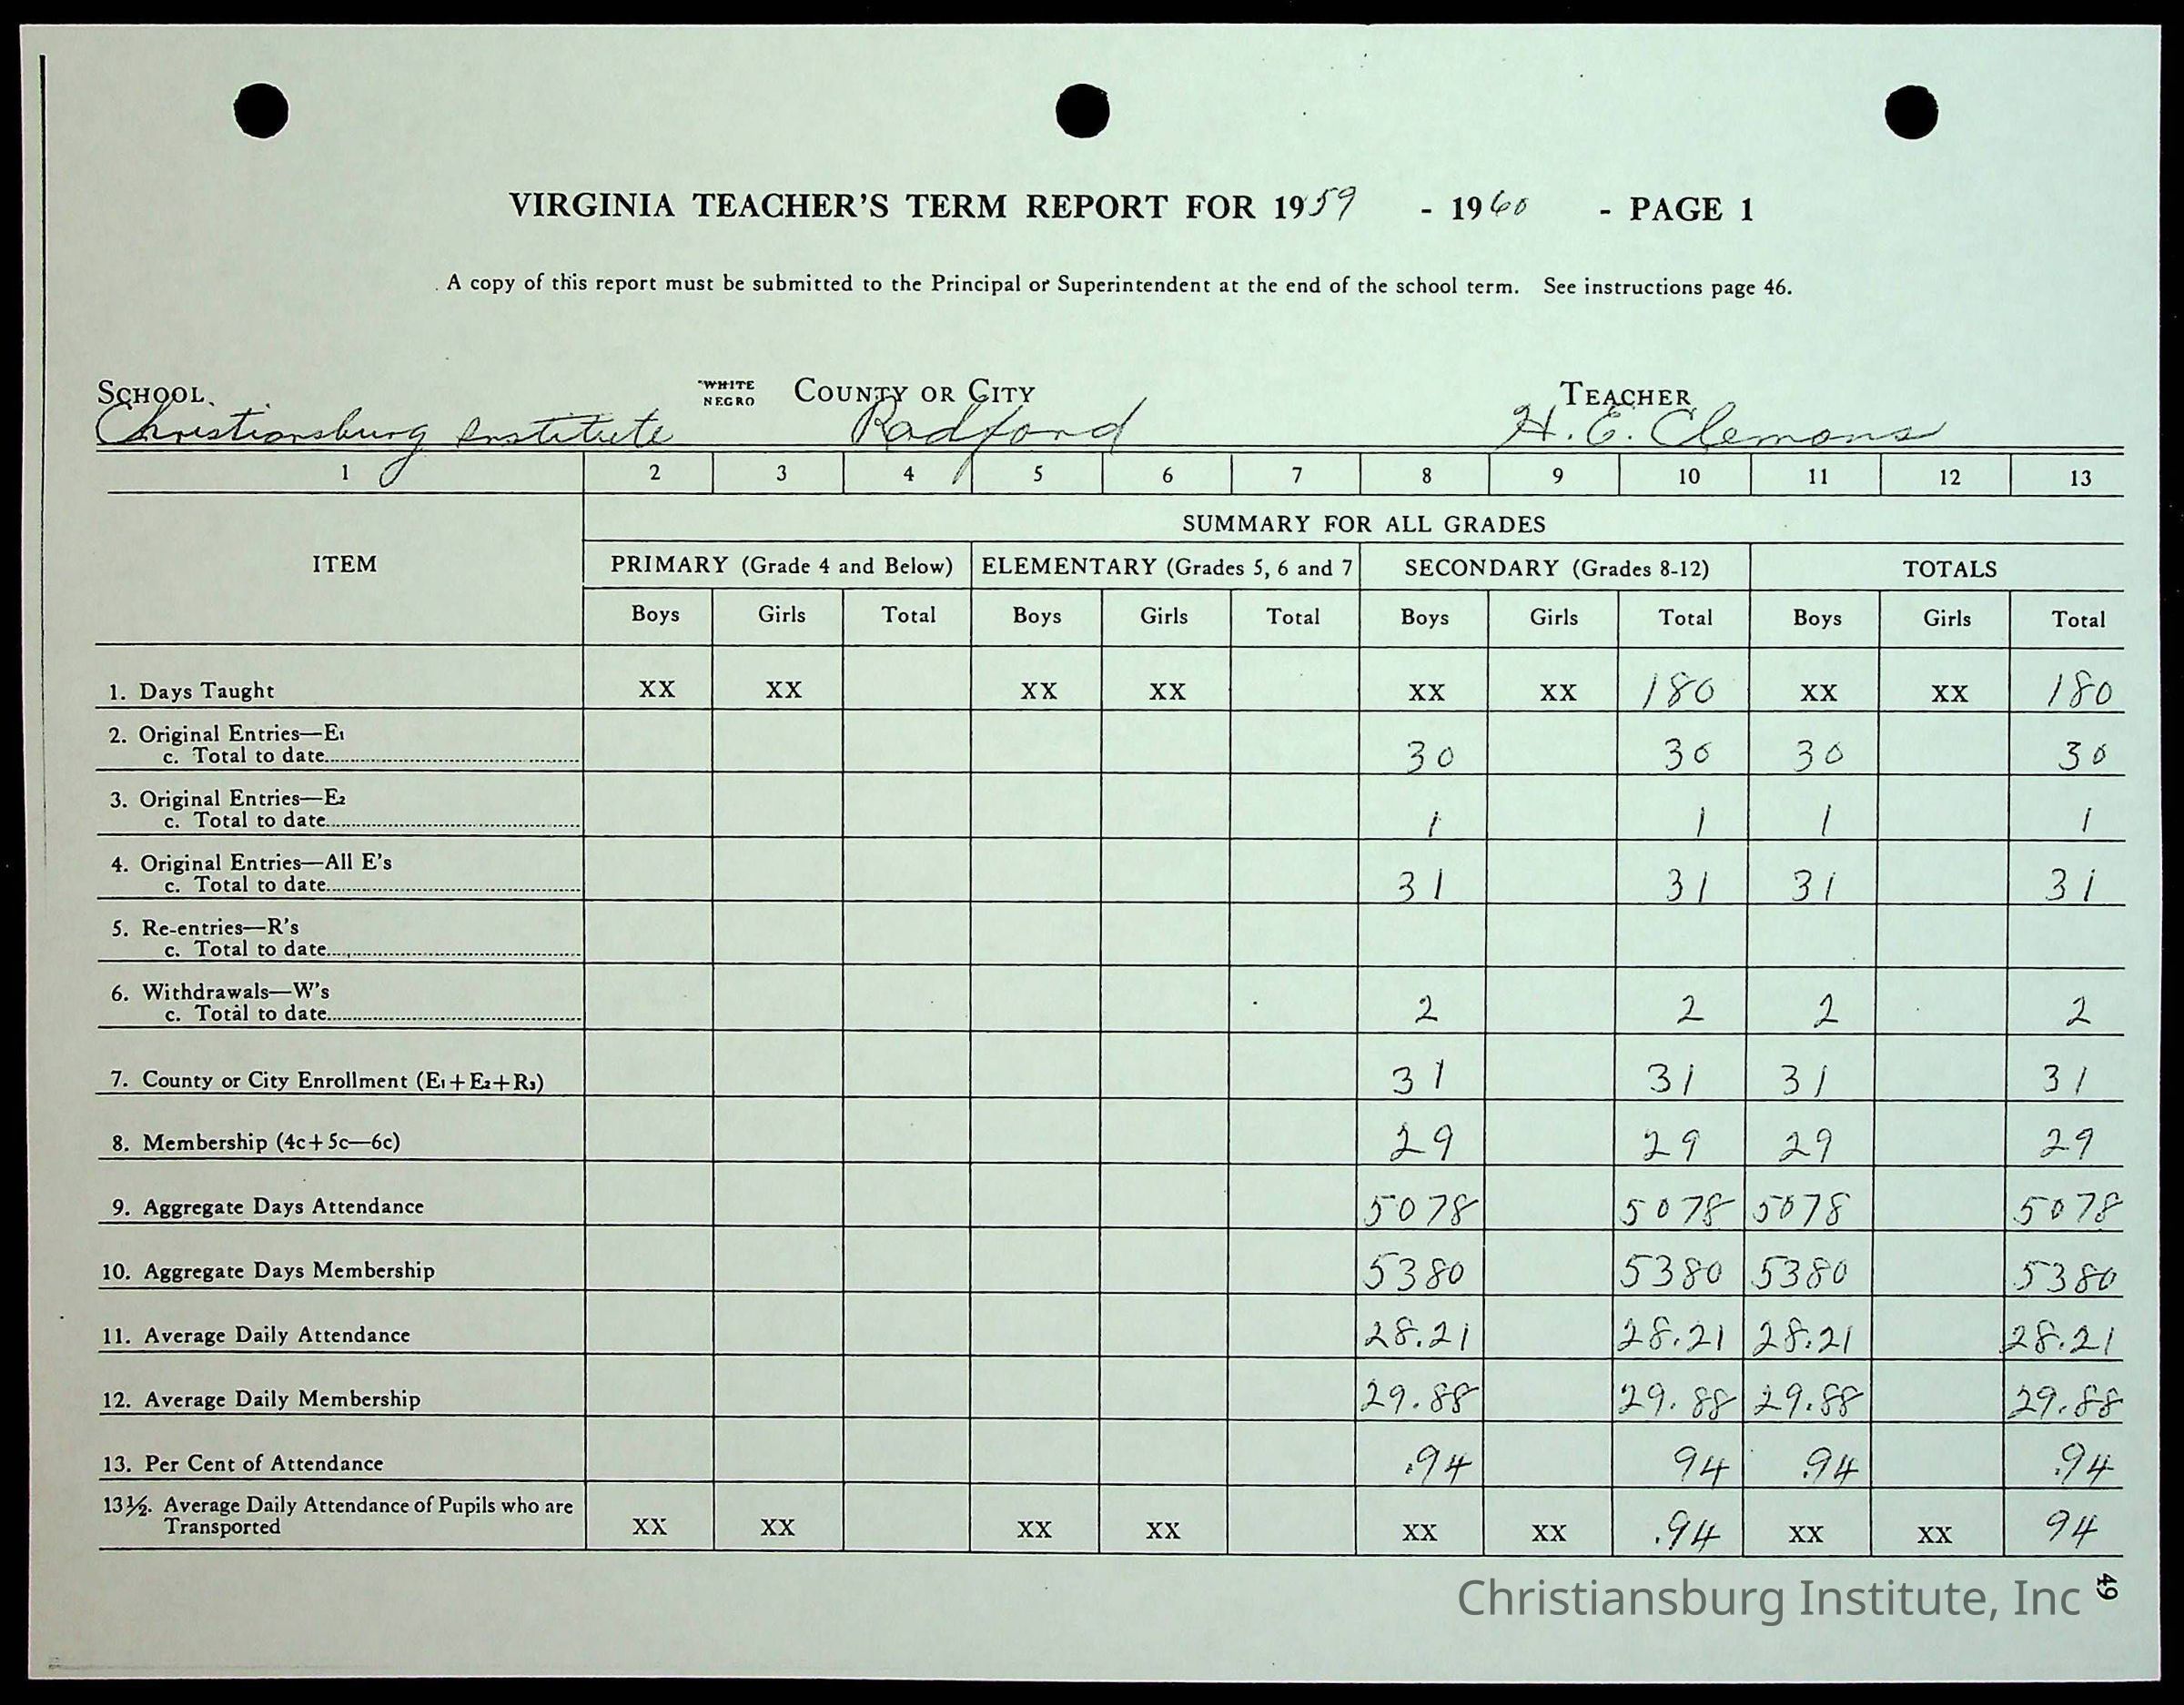 VIRGINIA TEACHER'S TERM REPORT FOR 1959 - 1960 - PAGE 1
A copy of this report must be submitted to the Principal or Superintendent at the end of the school term. See instructions page 46.
SCHOOL *WHITE NEGRO COUNTY OR CITY TEACHER
Christiansburg Institute Radford H. E. Clemons
1 2 3 4 5 6 7 8 9 10 11 12 13
SUMMARY FOR ALL GRADES
ITEM PRIMARY (Grade 4 and Below) ELEMENTARY (Grades 5, 6 and 7 SECONDARY (Grades 8-12) TOTALS
Boys Girls Total Boys Girls Total Boys Girls Total Boys Girls Total
1. Days Taught XX XX XX XX XX XX 180 XX XX 180
2. Original Entries—E1
c. Total to date 30 30 30 30
3. Original Entries—E2
c. Total to date 1 1 1 1
4. Original Entries—All E's
c. Total to date 31 31 31 31
5. Re-entries—R's
c. Total to date
6. Withdrawals—W's
c. Total to date 2 2 2 2
7. County or City Enrollment (E1+E2+R3) 31 31 31 31
8. Membership (4c+5c—6c) 29 29 29 29
9. Aggregate Days Attendance 5078 5078 5078 5078
10. Aggregate Days Membership 5380 5380 5380 5380
11. Average Daily Attendance 28.21 28.21 28.21 28.21
12. Average Daily Membership 29.88 29.88 29.88 29.88
13. Per Cent of Attendance .94 94 .94 .94
13½. Average Daily Attendance of Pupils who are
Transported XX XX XX XX XX XX .94 XX XX 94
Christiansburg Institute, Inc
49